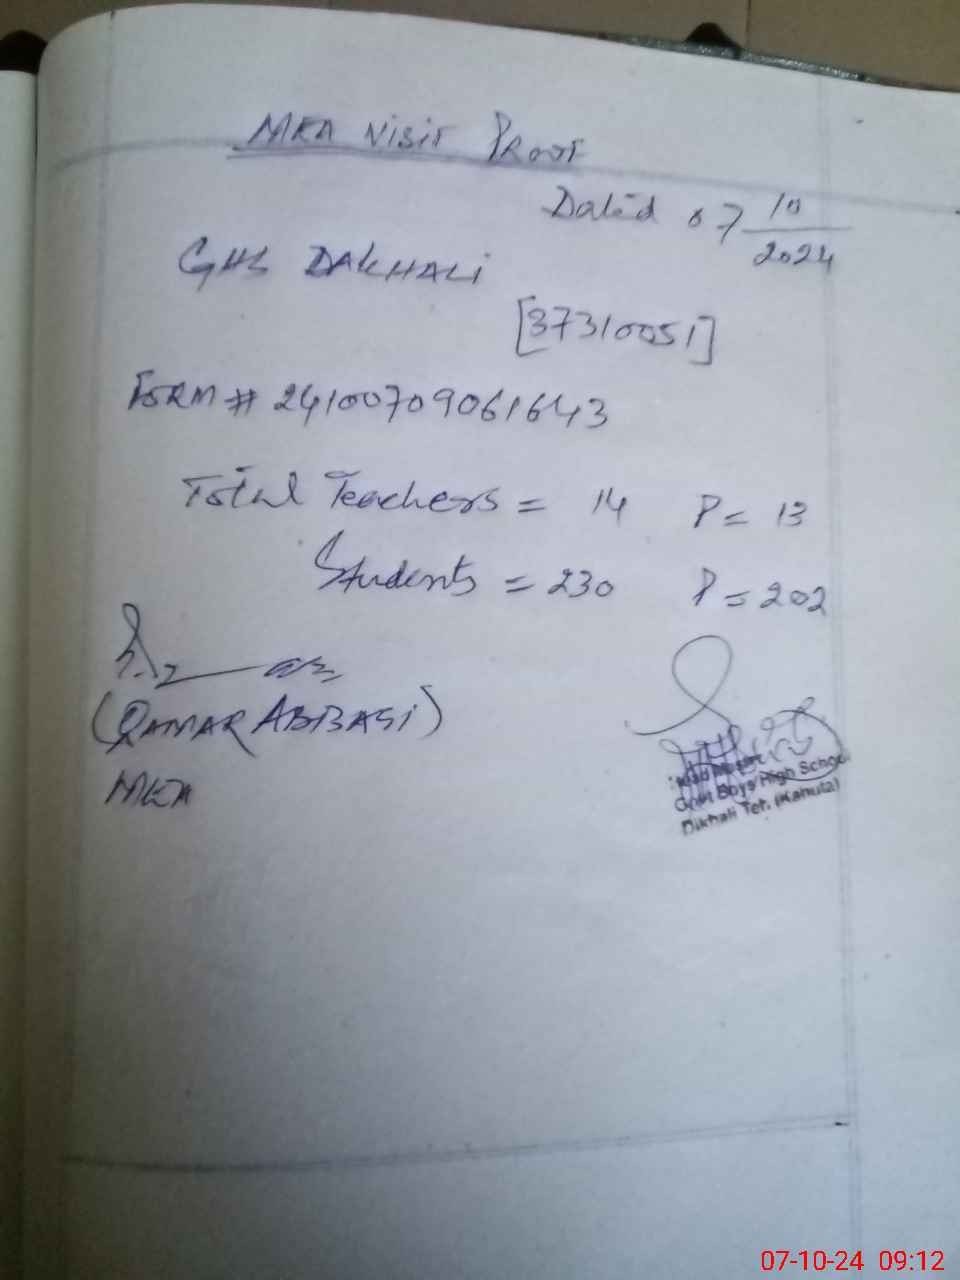 MEA VISIT PROOF
Dated 07 10/2024
GHS DAKHALI
[37310051]
FORM # 24100709061643
Total Teachers = 14 P = 13
Students = 230 P = 202
(QAMAR ABBASI)
MEA
Govt Boys High School
Dikhali Teh. (Kahuta)
07-10-24 09:12